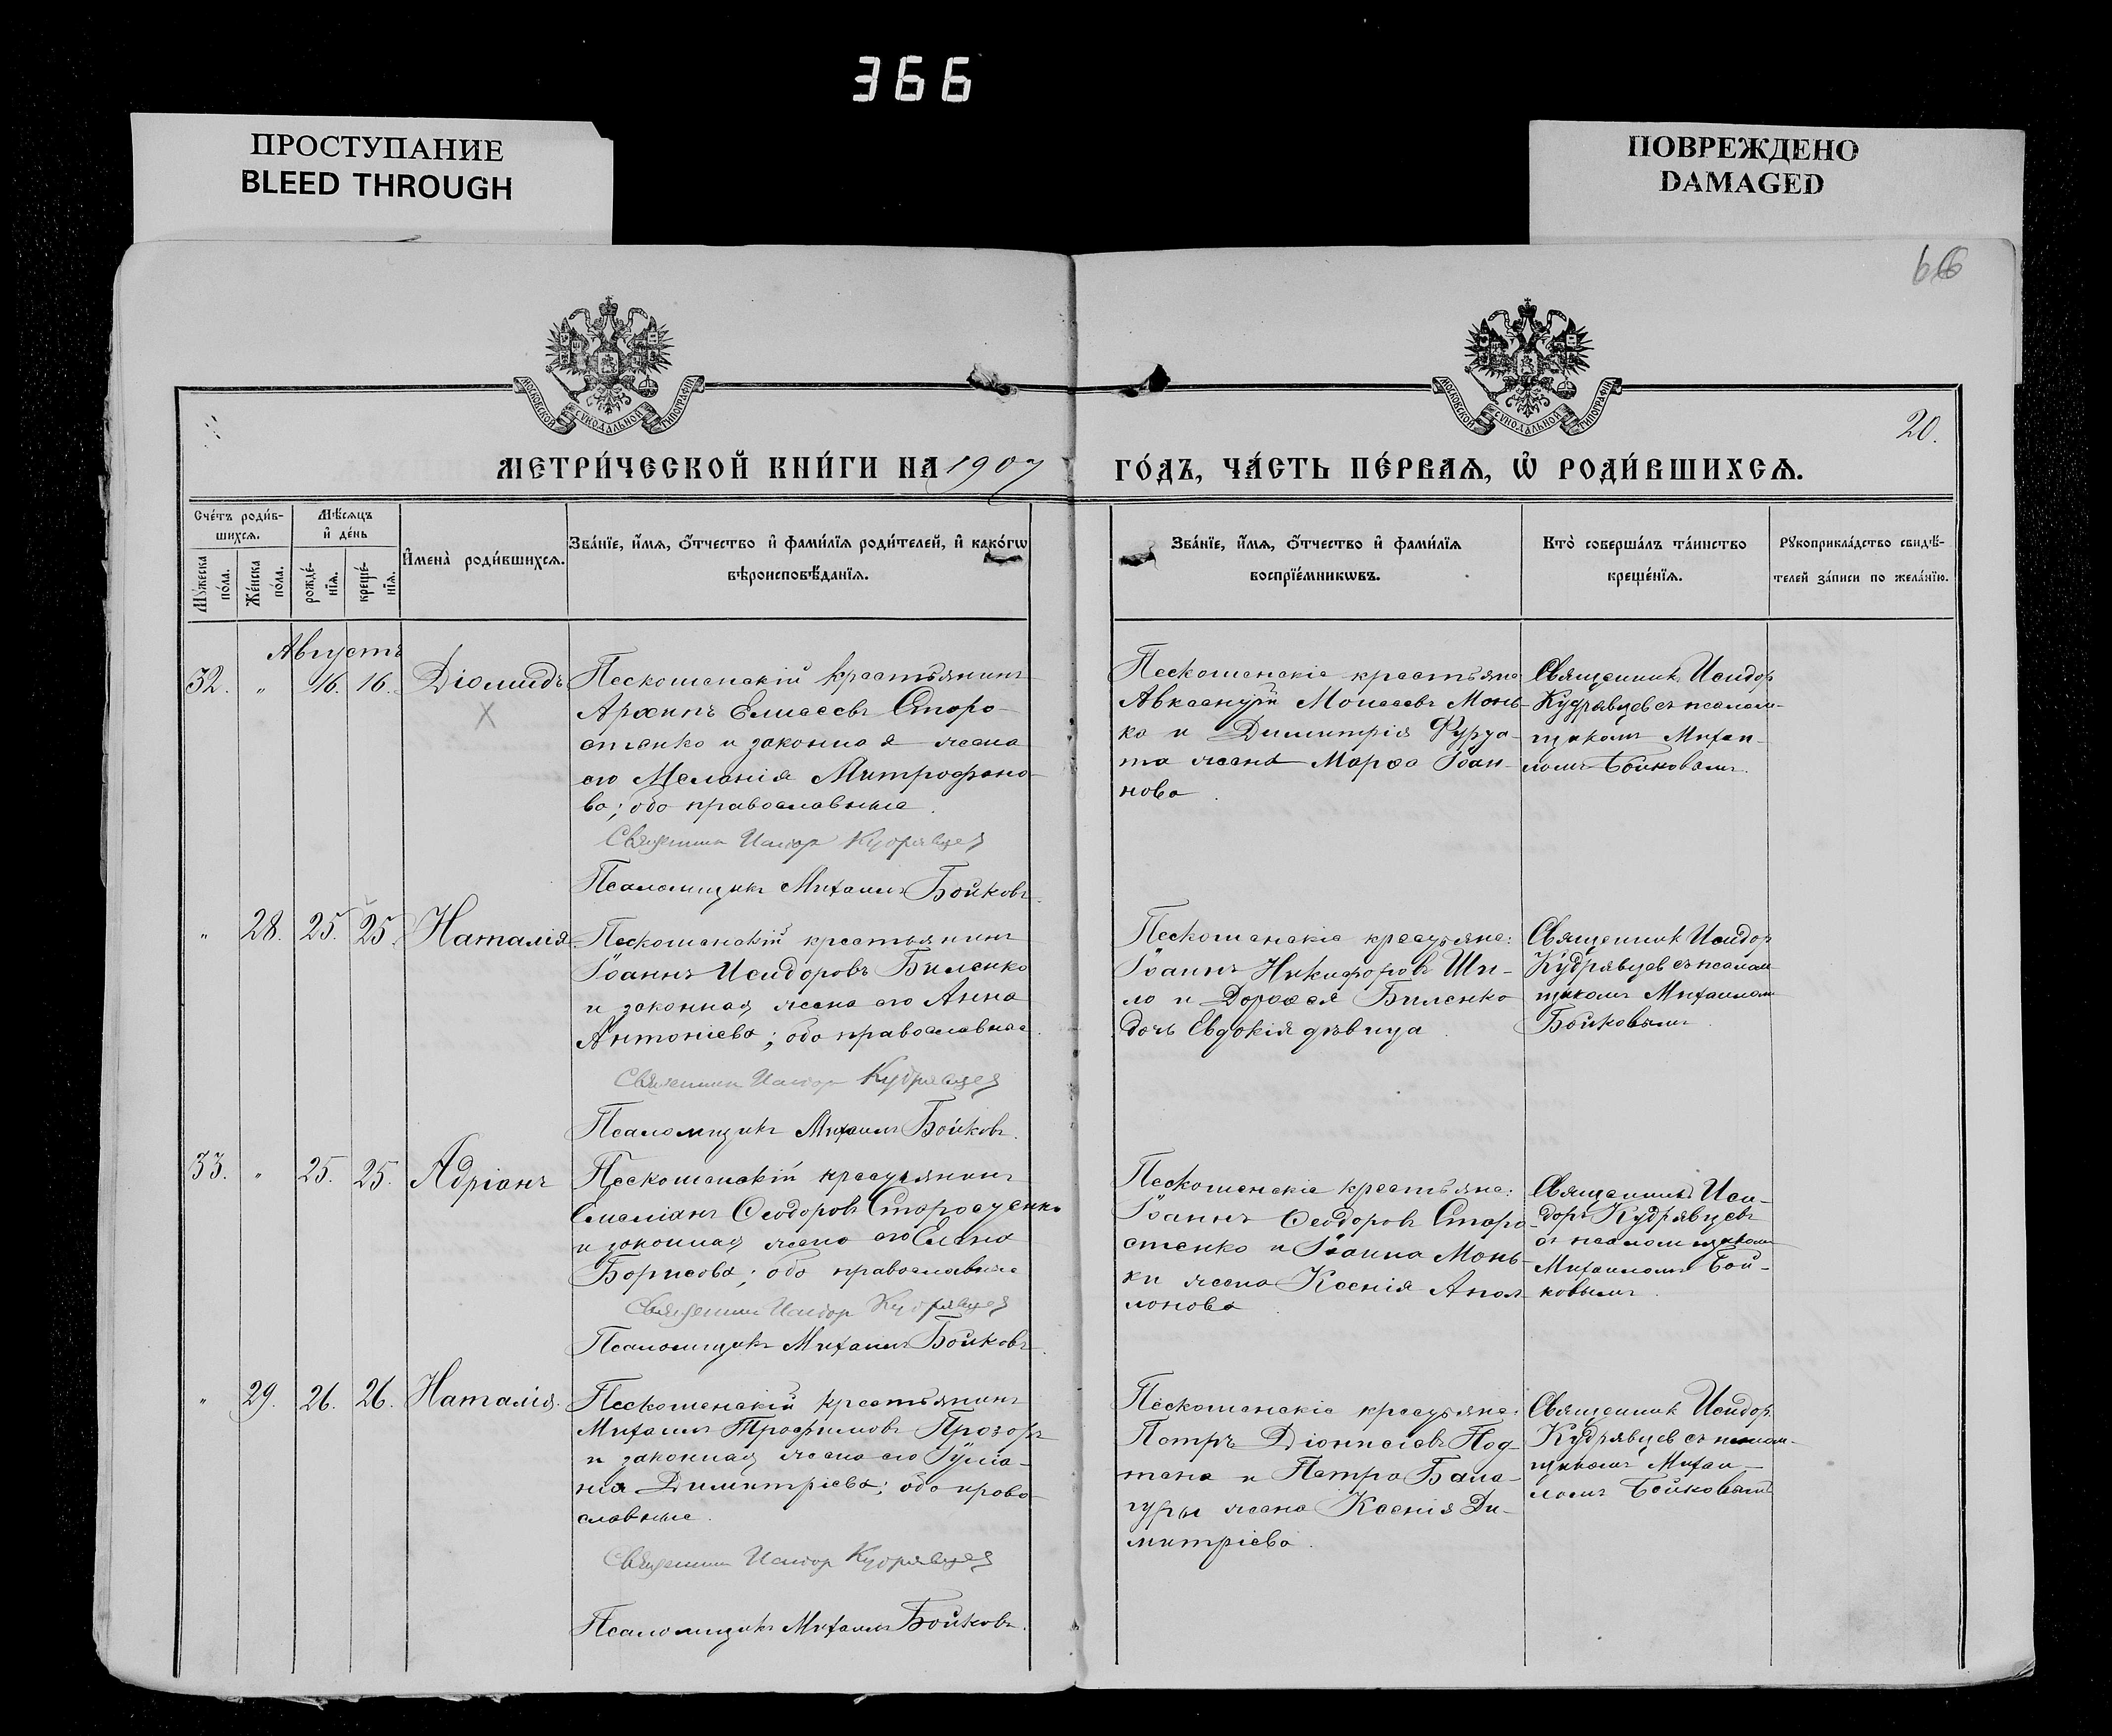 366
ПРОСТУПАНИЕ
BLEED THROUGH
ПОВРЕЖДЕНО
DAMAGED
66
МОСКОВСКОЙ СУНОДАЛЬНОЙ ТИПОГРАФІИ
МОСКОВСКОЙ СУНОДАЛЬНОЙ ТИПОГРАФІИ
20.
МЕТРИ́ЧЕСКОЙ КНИ́ГИ НА 1907 ГО́ДЪ, ЧА́СТЬ ПЕ́РВАѦ, Ѡ҆ РОДИ́ВШИХСѦ.
Сче́тъ роди́в-
шихсѧ.
Мꙋ́жеска по́ла.
Же́нска по́ла.
Мѣ́сѧцъ
и҆ де́нь
рожде́-
нїѧ.
креще́-
нїѧ.
И҆мена̀ роди́вшихсѧ.
Зва́нїе, и҆́мѧ, ѻ҆́тчество и҆ фами́лїѧ роди́телей, и҆ како́гѡ
вѣроисповѣ́данїѧ.
Зва́нїе, и҆́мѧ, ѻ҆́тчество и҆ фами́лїѧ
воспрїе́мникѡвъ.
Кто̀ соверша́лъ та́инство
креще́нїѧ.
Рꙋкоприкла́дство свидѣ́-
телей за́писи по жела́нїю.
Августъ
32. „ 16. 16. Діомидъ
Х
Пескошанскій крестьянинъ
Архипъ Елисеевъ Старо-
стенко и законная жена
его Меланія Митрофано-
ва; оба православные.
Священник Исидор Кудрявцев
Псаломщикъ Михаилъ Бойковъ.
Пескошанскіе крестьяне
Авксентій Моисеевъ Монь-
ко и Димитрія
та жена Марѳа Іоан-
нова.
Священникъ Исидоръ
Кудрявцевъ съ псалом-
щикомъ Михаи-
ломъ Бойковымъ.
„ 28. 25. 25. Наталія.
Пескошанскій крестьянинъ
Іоаннъ Исидоровъ Биленко
и законная жена его Анна
Антоніева; оба православные.
Священник Исидор Кудрявцев
Псаломщикъ Михаилъ Бойковъ.
Пескошанскіе крестьяне:
Іоаннъ Никифоровъ Ши-
ло и Дороѳея Биленко
дочь Евдокія дѣвица.
Священникъ Исидоръ
Кудрявцевъ съ псалом-
щикомъ Михаиломъ
Бойковымъ.
33. „ 25. 25. Адріанъ
Пескошанскій крестьянинъ
Емеліанъ Ѳеодоровъ Старостенко
и законная жена его Елена
Борисова; оба православные
Священник Исидор Кудрявцев
Псаломщикъ Михаилъ Бойковъ.
Пескошанскіе крестьяне:
Іоаннъ Ѳеодоровъ Старо-
стенко и Іоанна Монь-
ки жена Ксенія Апол-
лонова.
Священникъ Иси-
доръ Кудрявцевъ
съ псаломщикомъ
Михаиломъ Бой-
ковымъ.
„ 29. 26. 26. Наталія.
Пескошанскій крестьянинъ
Михаилъ Трофимовъ Прозоръ
и законная жена его Іуліа-
нія Димитріева; оба право-
славные.
Священник Исидор Кудрявцев
Псаломщикъ Михаилъ Бойковъ.
Пескошанскіе крестьяне:
Петръ Діонисіевъ Под-
тепа и Петра Бала-
гуры жена Ксенія Ди-
митріева.
Священникъ Исидоръ
Кудрявцевъ съ псалом-
щикомъ Михаи-
ломъ Бойковымъ